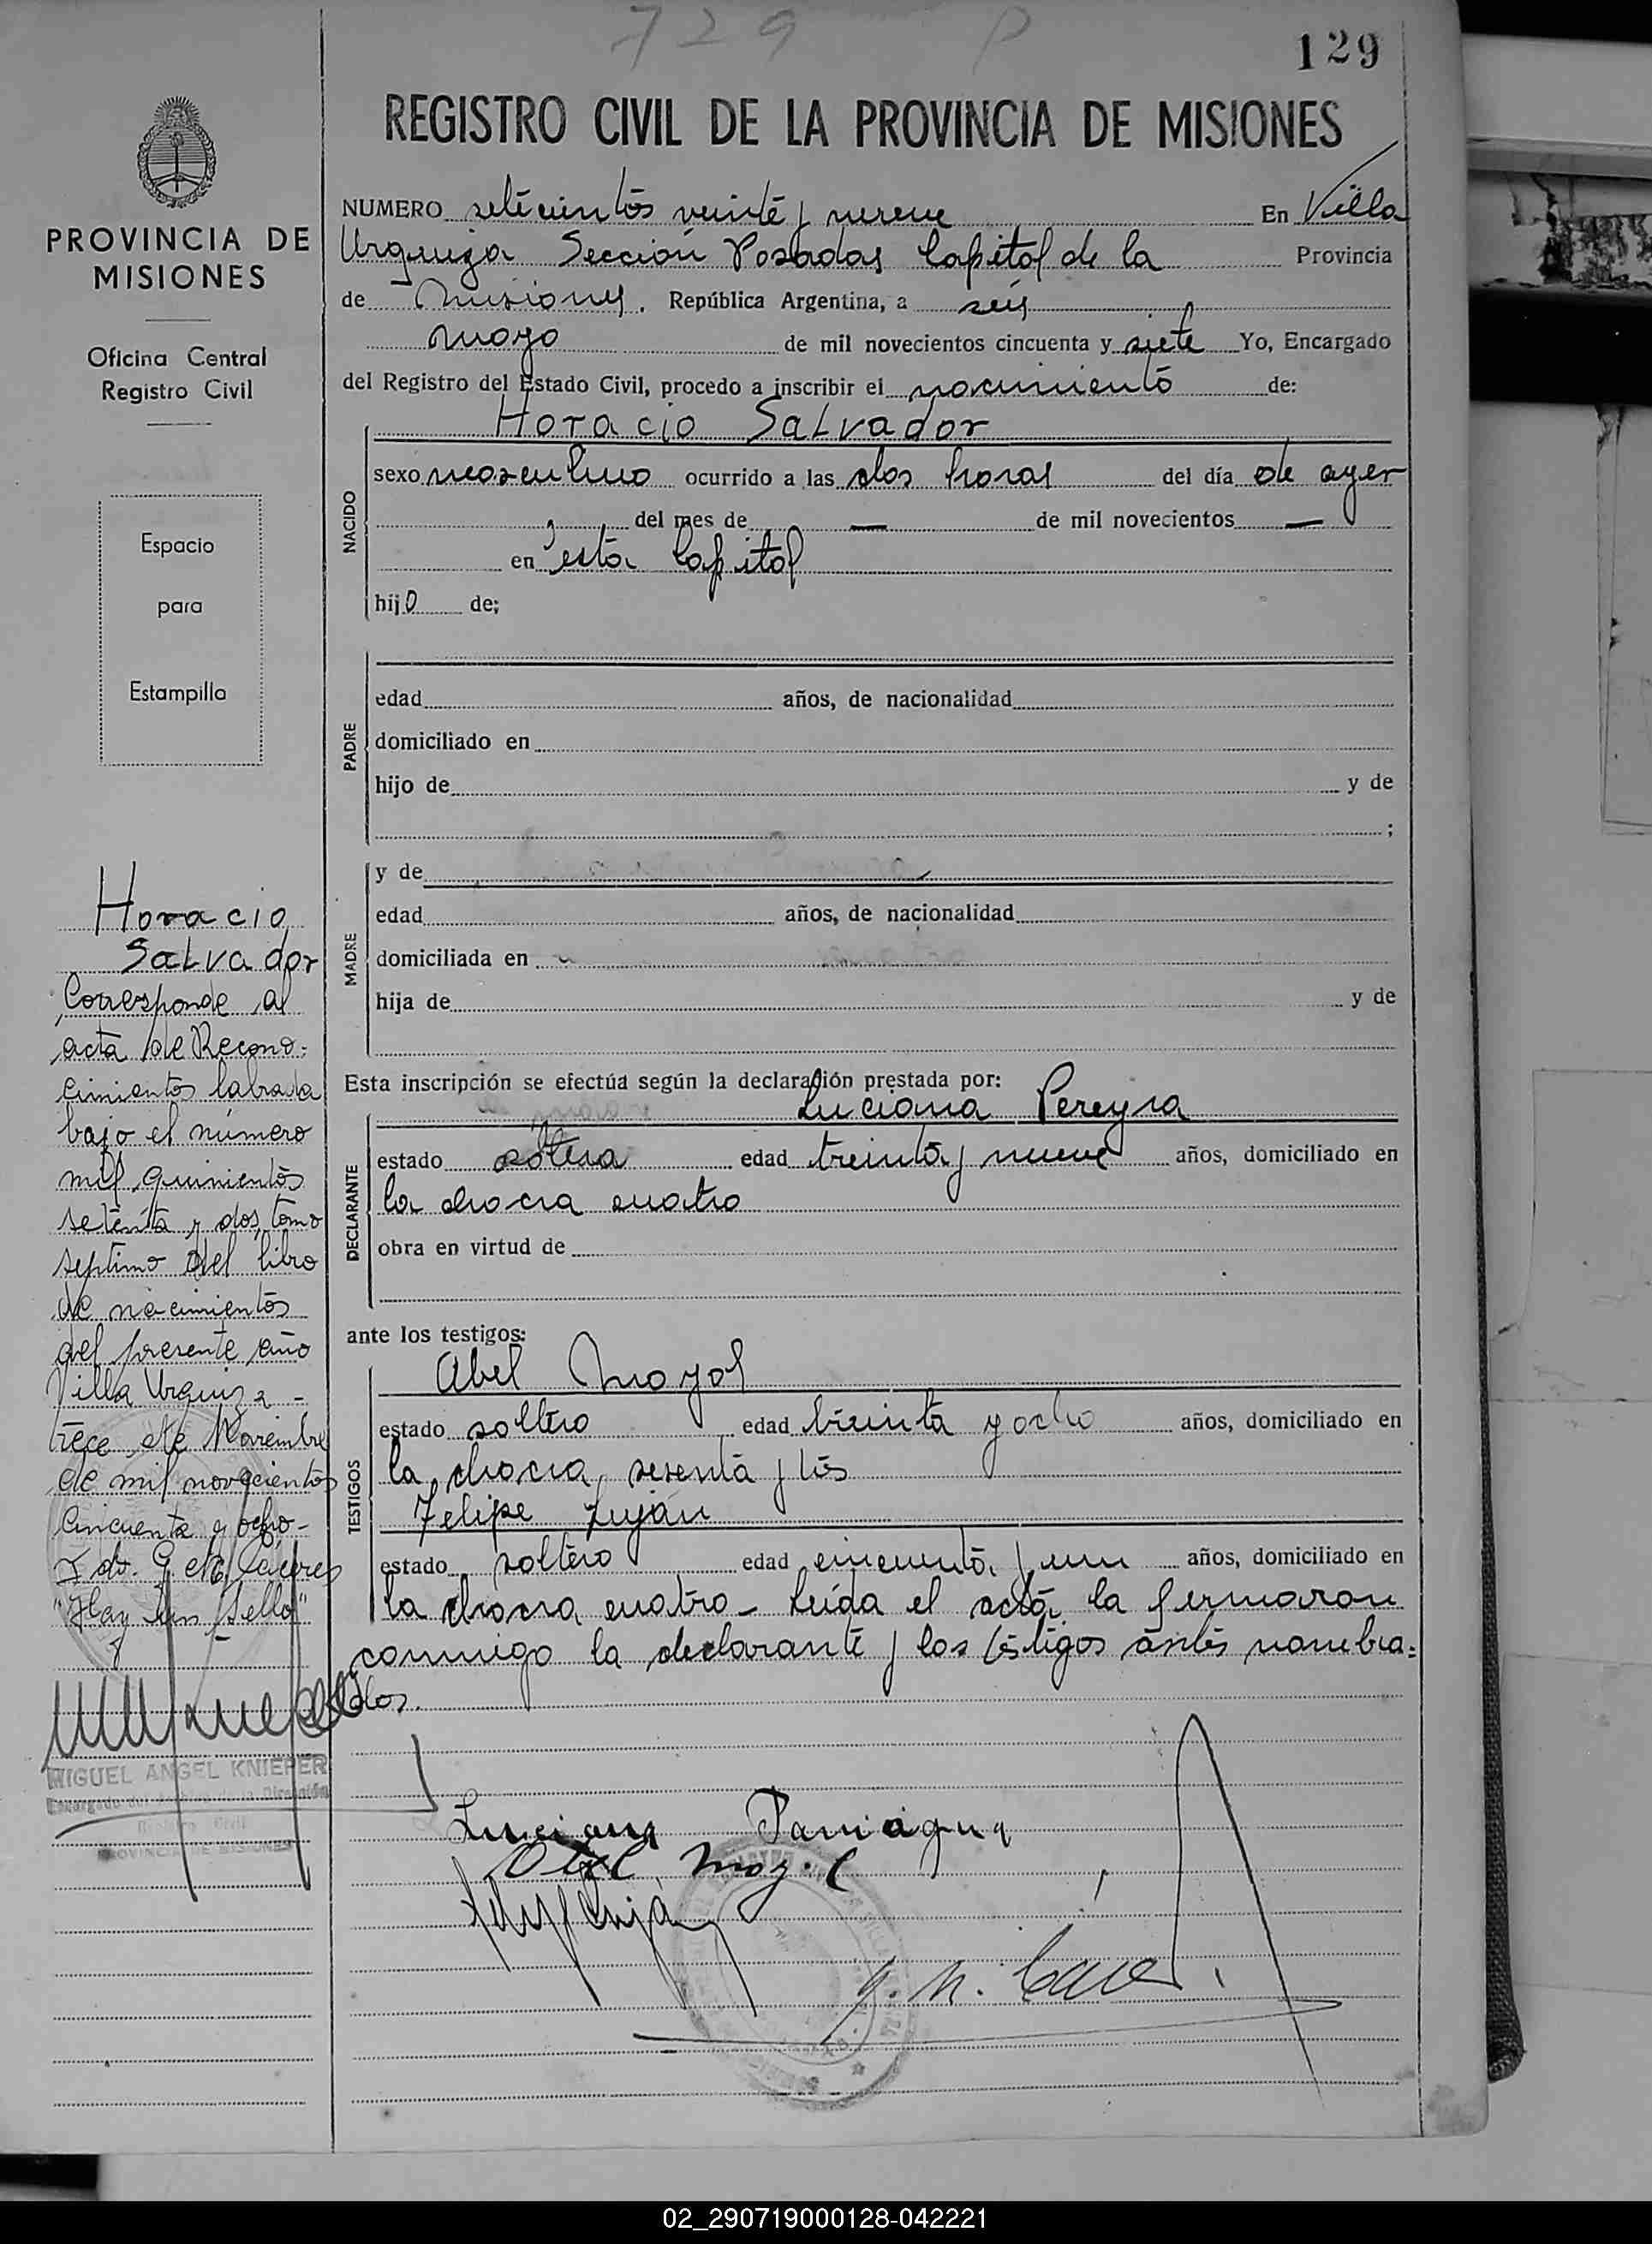 729 P
129
REGISTRO CIVIL DE LA PROVINCIA DE MISIONES
PROVINCIA DE
MISIONES
Oficina Central
Registro Civil
Espacio
para
Estampilla
NUMERO setecientos veinte y nueve En Villa
Urquiza Sección Posadas Capital de la Provincia
de Misiones. República Argentina, a seis
mayo de mil novecientos cincuenta y siete Yo, Encargado
del Registro del Estado Civil, procedo a inscribir el nacimiento de:
Horacio Salvador
NACIDO
sexo masculino ocurrido a las dos horas del día de ayer
del mes de — de mil novecientos —
en ésta Capital
hijo de;
PADRE
edad años, de nacionalidad
domiciliado en
hijo de y de
;
MADRE
y de
edad años, de nacionalidad
domiciliada en
hija de y de
Esta inscripción se efectúa según la declaración prestada por:
Luciana Pereyra
DECLARANTE
estado soltera edad treinta y nueve años, domiciliado en
la chacra cuatro
obra en virtud de
ante los testigos:
Abel Moyol
TESTIGOS
estado soltero edad treinta y ocho años, domiciliado en
la chacra sesenta y tés
Felipe Luján
estado soltero edad cincuenta y un años, domiciliado en
la chacra cuatro - Leída el acta la firmaron
conmigo la declarante y los testigos antes nombra=
dos.
Luciana Paniagua
Abel Moy.l
Felipe Luján
Horacio
Salvador
Corresponde al
acta de Recono=
cimientos labrada
bajo el número
mil quinientos
setenta y dos, tomo
septimo del libro
de nacimientos
del presente año
Villa Urquiza -
trece de Noviembre
de mil novecientos
cincuenta y ocho -
Fdo. G. N. Cáceres
"Hay un sello"
MIGUEL ANGEL KNIEPER
Encargado del Archivo de la Dirección
Registro Civil
PROVINCIA DE MISIONES
02_290719000128-042221